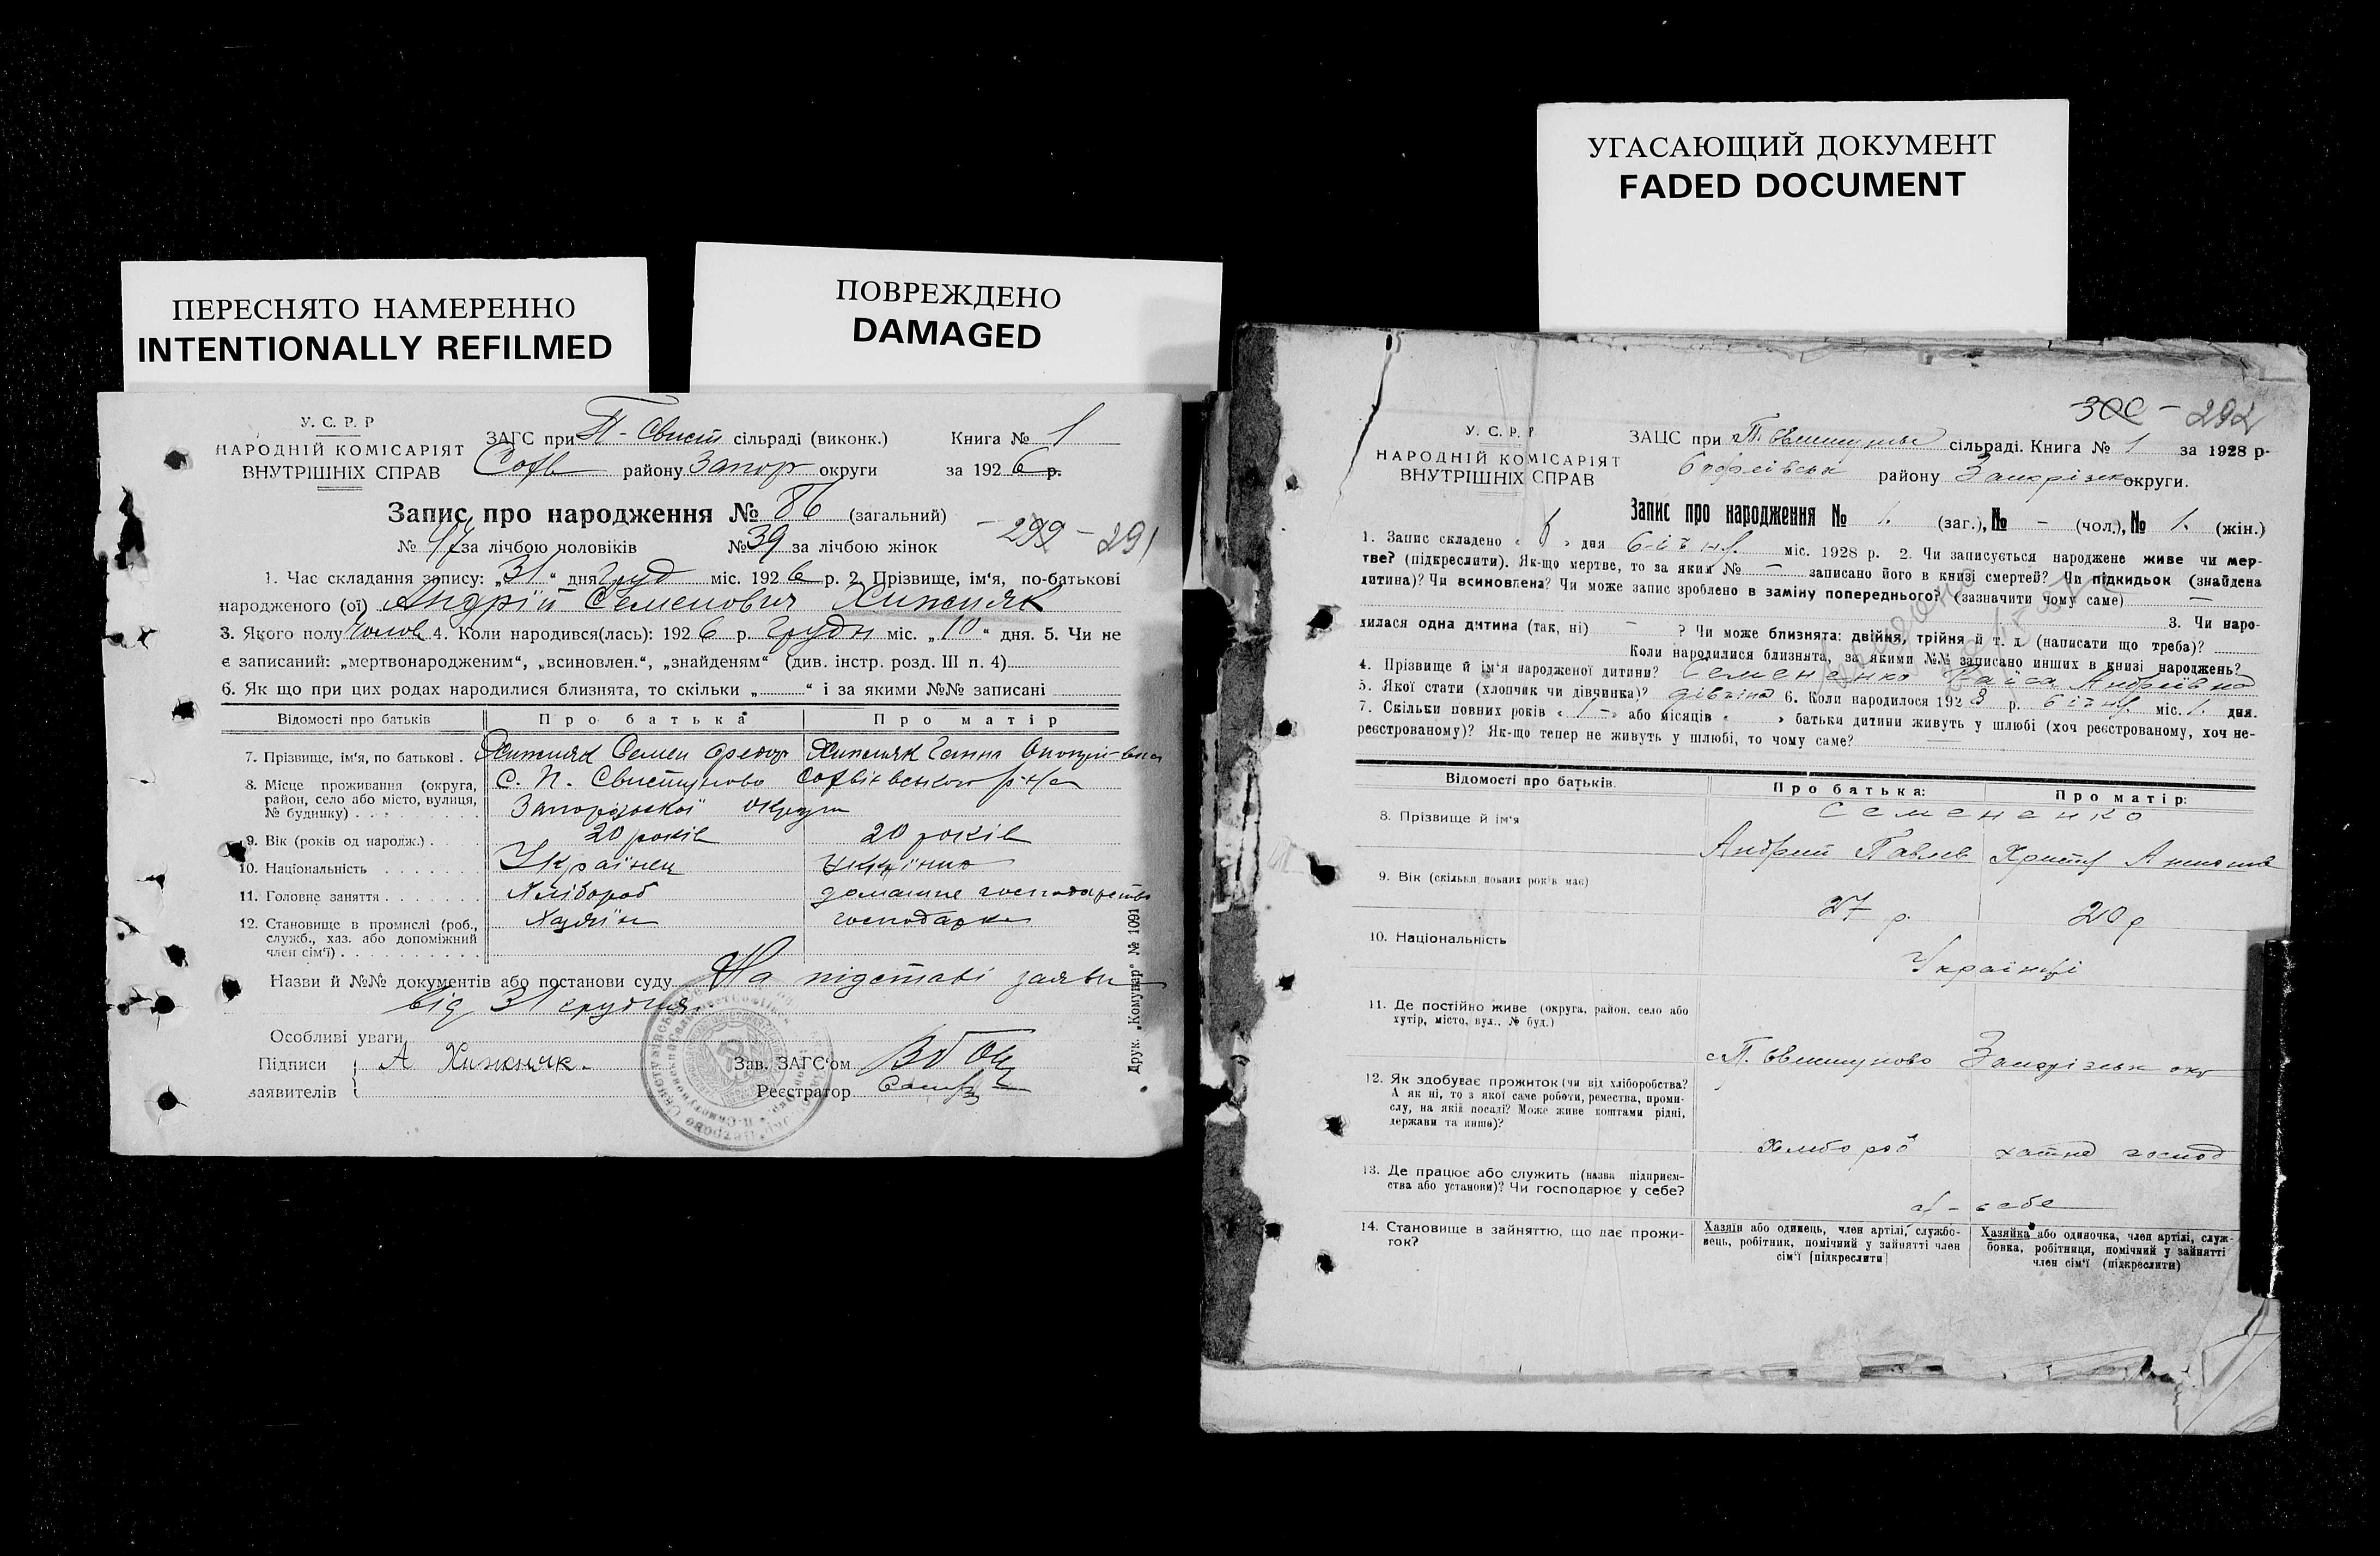 ПЕРЕСНЯТО НАМЕРЕННО
INTENTIONALLY REFILMED
ПОВРЕЖДЕНО
DAMAGED
УГАСАЮЩИЙ ДОКУМЕНТ
FADED DOCUMENT
У. С. Р. Р
НАРОДНІЙ КОМІСАРІЯТ
ВНУТРІШНІХ СПРАВ
ЗАГС при П-Свист сільраді (виконк.) Книга № 1
Софв району Запор округи за 1926 р.
Запис про народження № 86 (загальний)
№ 47 за лічбою чоловіків № 39 за лічбою жінок - 299 - 291
1. Час складання запису: „31“ дня груд міс. 1926 р. 2. Прізвище, ім‘я, по-батькові
народженого (ої) Андрій Семенович Хижняк
3. Якого полу Чолов. 4. Коли народився(лась): 1926 р. грудн міс. „10“ дня. 5. Чи не
є записаний: „мертвонародженим“, „всиновлен.“, „знайденям“ (див. інстр. розд. III п. 4)
6. Як що при цих родах народилися близнята, то скільки „ “ і за якими №№ записані
Відомості про батьків Про батька Про матір
7. Прізвище, ім‘я, по батькові . Хижняк Семен Федор Хижняк Ганна
8. Місце проживання (округа, район, село або місто, вулиця, № будинку) С. П. Свистуново Софіївського р-на
Запорізької округи
9. Вік (років од народж.) . 20 років 20 років
10. Національність Українец Українка
11. Головне заняття Хлібороб домашне господарство
12. Становище в промислі (роб., служб., хаз. або допоміжний член сім‘ї) Хазяїн господарка
Назви й №№ документів або постанови суду На підставі заяви
від 31 грудня.
Особливі уваги
Підписи заявителів А Хижняк.
Зав. ЗАГС‘ом
Реєстратор
Друк. „Комунар“ № 1091
300 - 292
У. С. Р. Р
НАРОДНІЙ КОМІСАРІЯТ
ВНУТРІШНІХ СПРАВ
ЗАЦС при П. Свистунівс сільраді. Книга № 1 за 1928 р.
Софіївськ району Запорізьк округи.
Запис про народження № 1. (заг.), № - (чол.), № 1. (жін.)
1. Запис складено « » дня січня міс. 1928 р. 2. Чи записується народжене живе чи мер-
тве? (підкреслити). Як-що мертве, то за яким № — записано його в книзі смертей? Чи підкидьок (знайдена
дитина)? Чи всиновлена? Чи може запис зроблено в заміну попереднього? (зазначити чому саме) —
3. Чи наро-
дилася одна дитина (так, ні) - ? Чи може близнята: двійня, трійня й т. д. (написати що треба)?
Коли народилися близнята, за якими №№ записано инших в книзі народжень?
4. Прізвище й ім‘я народженої дитини? Семененко Раїса Андріівна
5. Якої стати (хлопчик чи дівчинка)? дівчина 6. Коли народилося 1928 р. січня міс. 1. дня.
7. Скільки повних років « 1 - » або місяців « » батьки дитини живуть у шлюбі (хоч реєстрованому, хоч не-
реєстрованому)? Як-що тепер не живуть у шлюбі, то чому саме?
Відомості про батьків. Про батька: Про матір:
8. Прізвище й ім‘я Семененко
Андрій Павлов
9. Вік (скільки повних років має) 27 р. 20 р
10. Національність Українці
11. Де постійно живе (округа, район, село або
хутір, місто, вул., № буд.)
с П. Свистуново Запорізьк окр
12. Як здобуває прожиток (чи від хліборобства?
А як ні, то з якої саме роботи, ремества, проми-
слу, на якій посаді? Може живе коштами рідні,
держави та инше)?
Хлибороб хатне господ
13. Де працює або служить (назва підприєм-
ства або установи)? Чи господарює у себе?
у - себе
14. Становище в зайняттю, що дає прожи-
ток?
Хазяїн або одинець, член артілі, службо-
вець, робітник, помічний у зайнятті член
сім‘ї [підкреслити]
Хазяйка або одиночка, член артілі, служ-
бовка, робітниця, помічний у зайнятті
член сім‘ї (підкреслити)